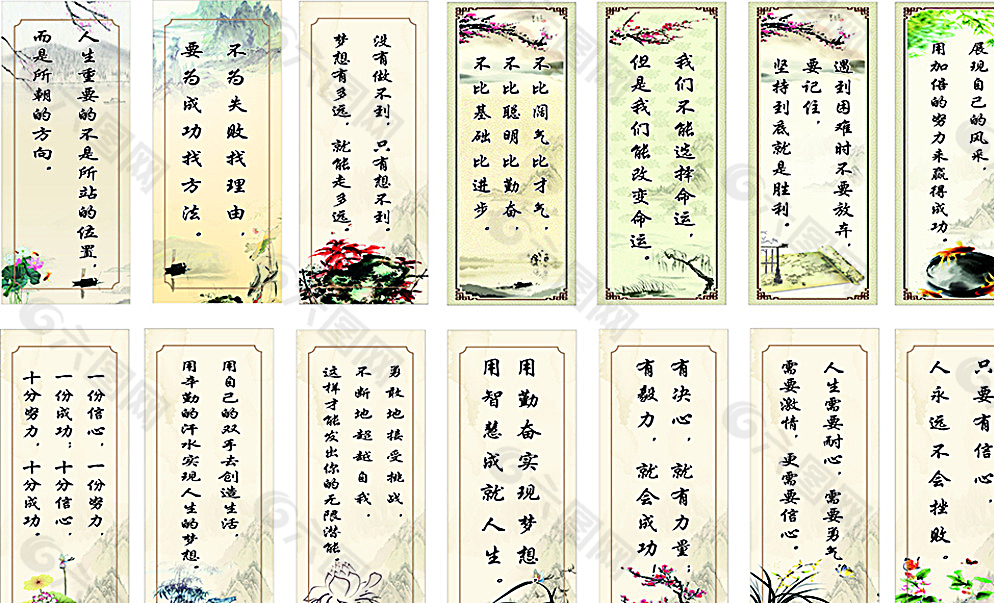 人生重要的不是所站的位置，
而是所朝的方向。
不为失败找理由
要为成功找方法。
没有做不到，只有想不到。
梦想有多远，就能走多远。
不比阔气比才气，
不比聪明比勤奋，
不比基础比进步。
我们不能选择命运，
但是我们能改变命运。
遇到困难时不要放弃，
要记住，
坚持到底就是胜利。
展现自己的风采，
用加倍的努力来赢得成功。
一份信心，一份努力，
一份成功；十分信心，
十分努力，十分成功。
用自己的双手去创造生活，
用辛勤的汗水实现人生的梦想。
勇敢地接受挑战，
不断地超越自我，
这样才能发出你的无限潜能。
用勤奋实现梦想
用智慧成就人生。
有决心，就有力量；
有毅力，就会成功
人生需要耐心，需要勇气
需要激情，更需要信心。
只要有信心，
人永远不会挫败。
六图网